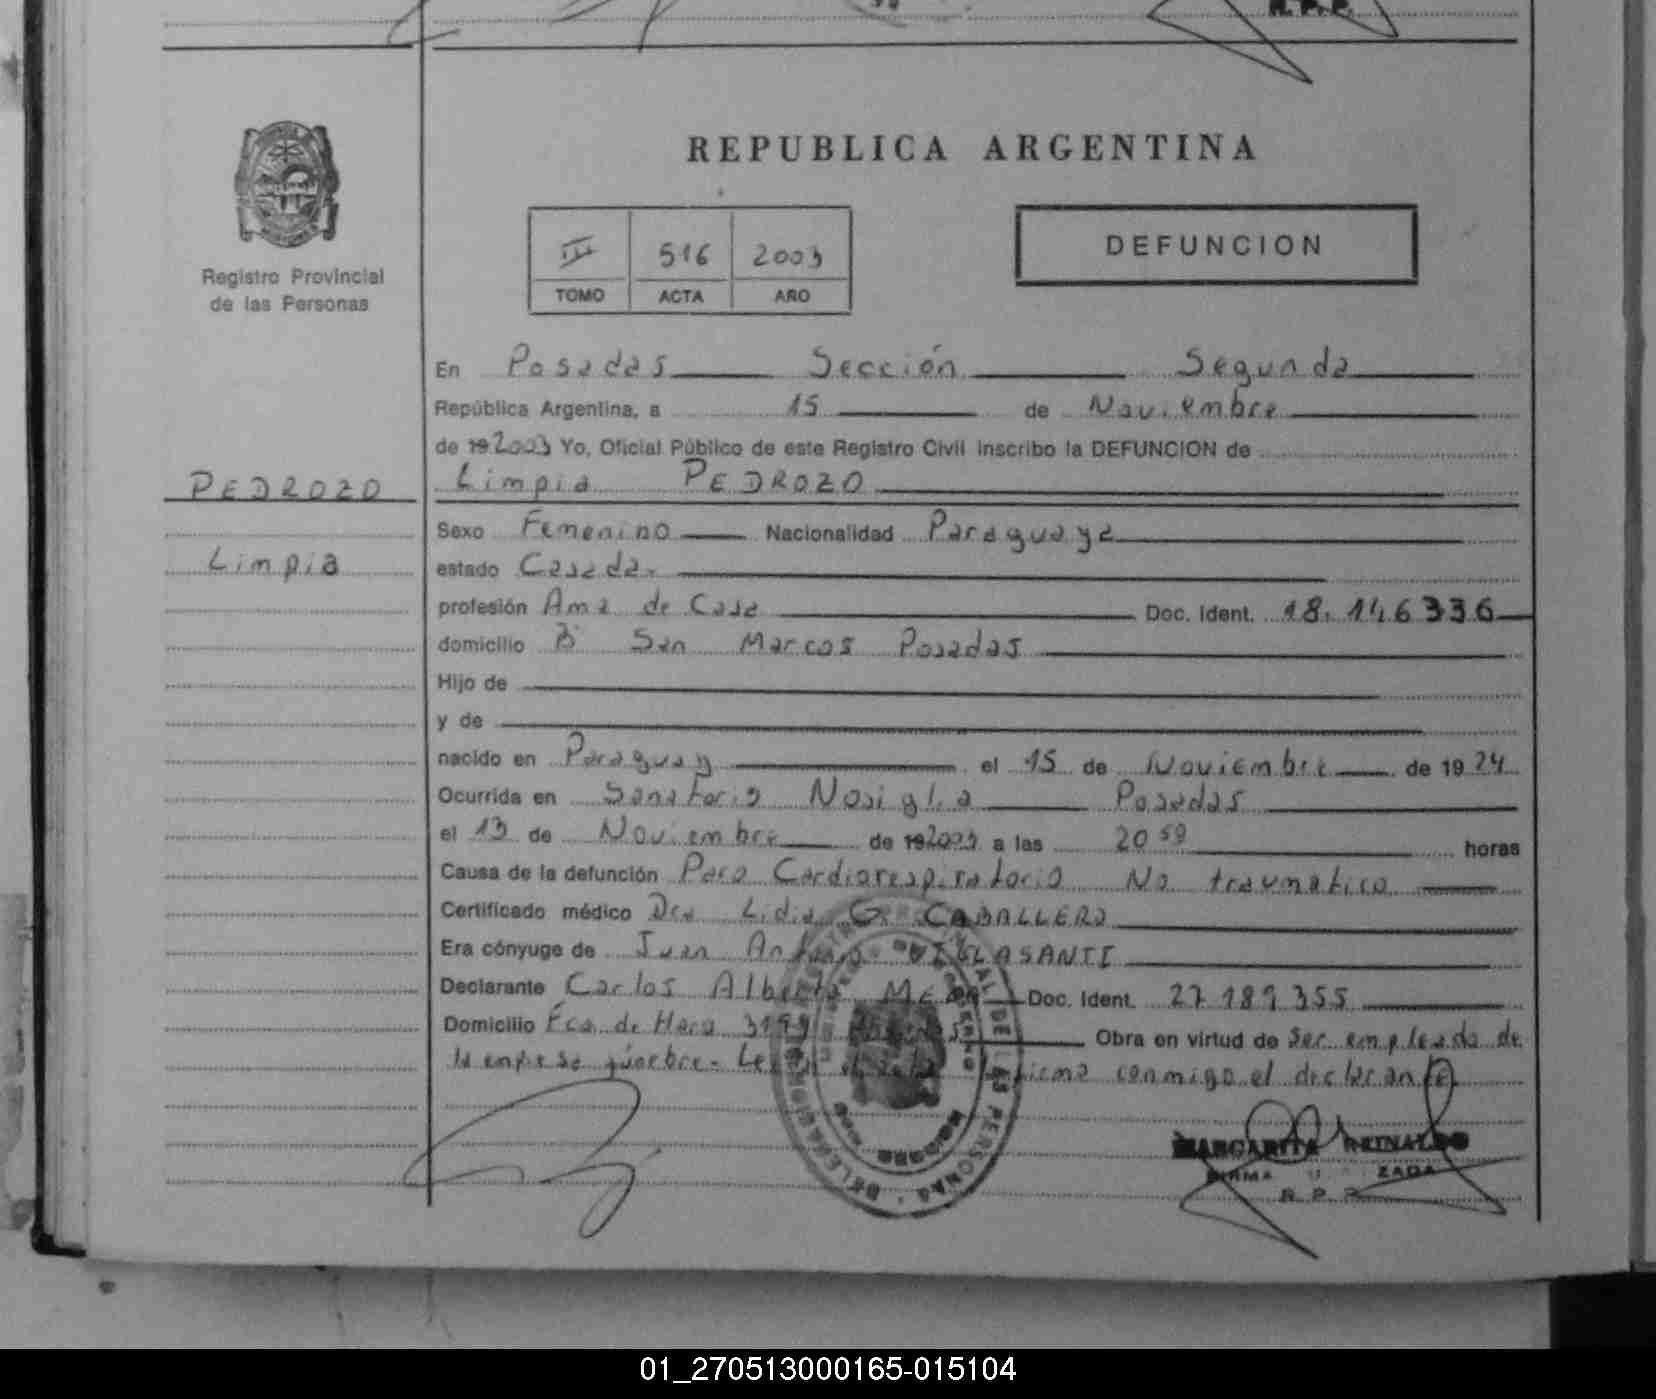 R. P. P.
REPUBLICA ARGENTINA
Registro Provincial
de las Personas
III 516 2003
TOMO ACTA AÑO
DEFUNCION
En Posadas Sección Segunda
República Argentina, a 15 de Noviembre
de 192003 Yo, Oficial Público de este Registro Civil inscribo la DEFUNCION de
PEDROZO
Limpia PEDROZO
Sexo Femenino Nacionalidad Paraguaya
Limpia
estado Casada.
profesión Ama de Casa Doc. Ident. 18.146336
domicilio B° San Marcos Posadas
Hijo de
y de
nacido en Paraguay el 15 de Noviembre de 1924
Ocurrida en Sanatorio Nosiglia Posadas
el 13 de Noviembre de 192003 a las 20 59 horas
Causa de la defunción Paro Cardiorespiratorio No traumatico
Certificado médico Dra Lidia G. CABALLERO
Era cónyuge de Juan Antonio VILLASANTI
Declarante Carlos Alberto Doc. Ident. 27 189 355
Domicilio Fco. de Haro Obra en virtud de Ser empleado de
la empresa fúnebre- firma conmigo el declarante
DELEGACION DE LAS PERSONAS
MARGARITA REINALDO
FIRMA ZADA
R. P. P.
01_270513000165-015104